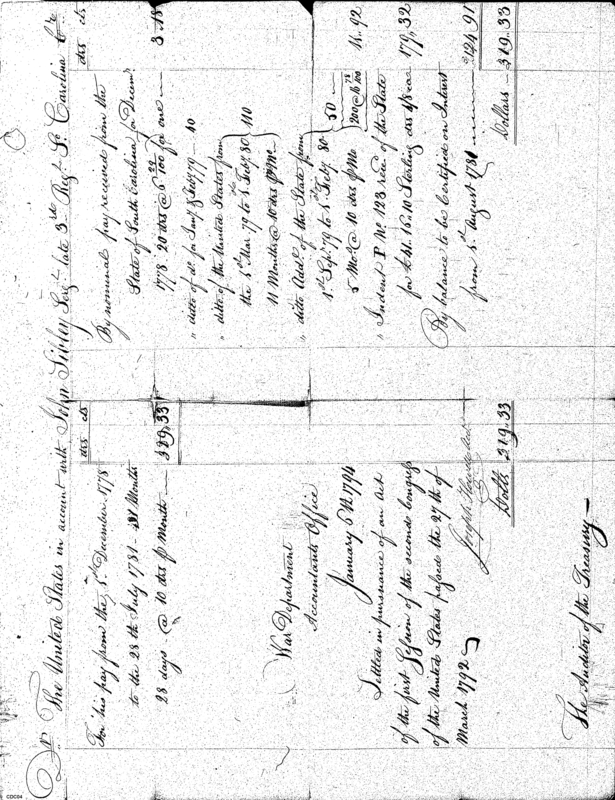 Dr. The United States in account with John Sibley Sergt. late 3rd Regt. So. Carolina Cr.
dls cts
For his pay from the 5th December 1778
to the 28th July 1781 - 31 Months
28 days @ 10 dls p Month — 319.33
War Department
Accountants Office
January 6th 1794
Settled in pursuance of an Act
of the first Session of the second Congress
of the United States passed the 27th of
March 1792
Joseph Howell
Dolls 319.33
The Auditor of the Treasury —
dls cts
By nominal pay received from the
State of South Carolina for Decem.
1778. 20 dls @ 6 for one — 3.18
" ditto of do. for Jany. & Feby. 1779 — 40
" ditto of the United States from
the 1st Mar 79 to Feby. 80 110
11 Months @ 10 dls p Mo.
" ditto Add. of the State from
1st Sep. 79 to Feby. 80 50 —
5 Mos. @ 10 dls p Mo 200 @ 11.92
" Indent P No. 123 recd. of the State
for £41.16.10 Sterling dls 4/8 179.32
By balance to be Certified on Interest
from 5th August 1781 — 124.91
Dollars — 319.33
CDC04